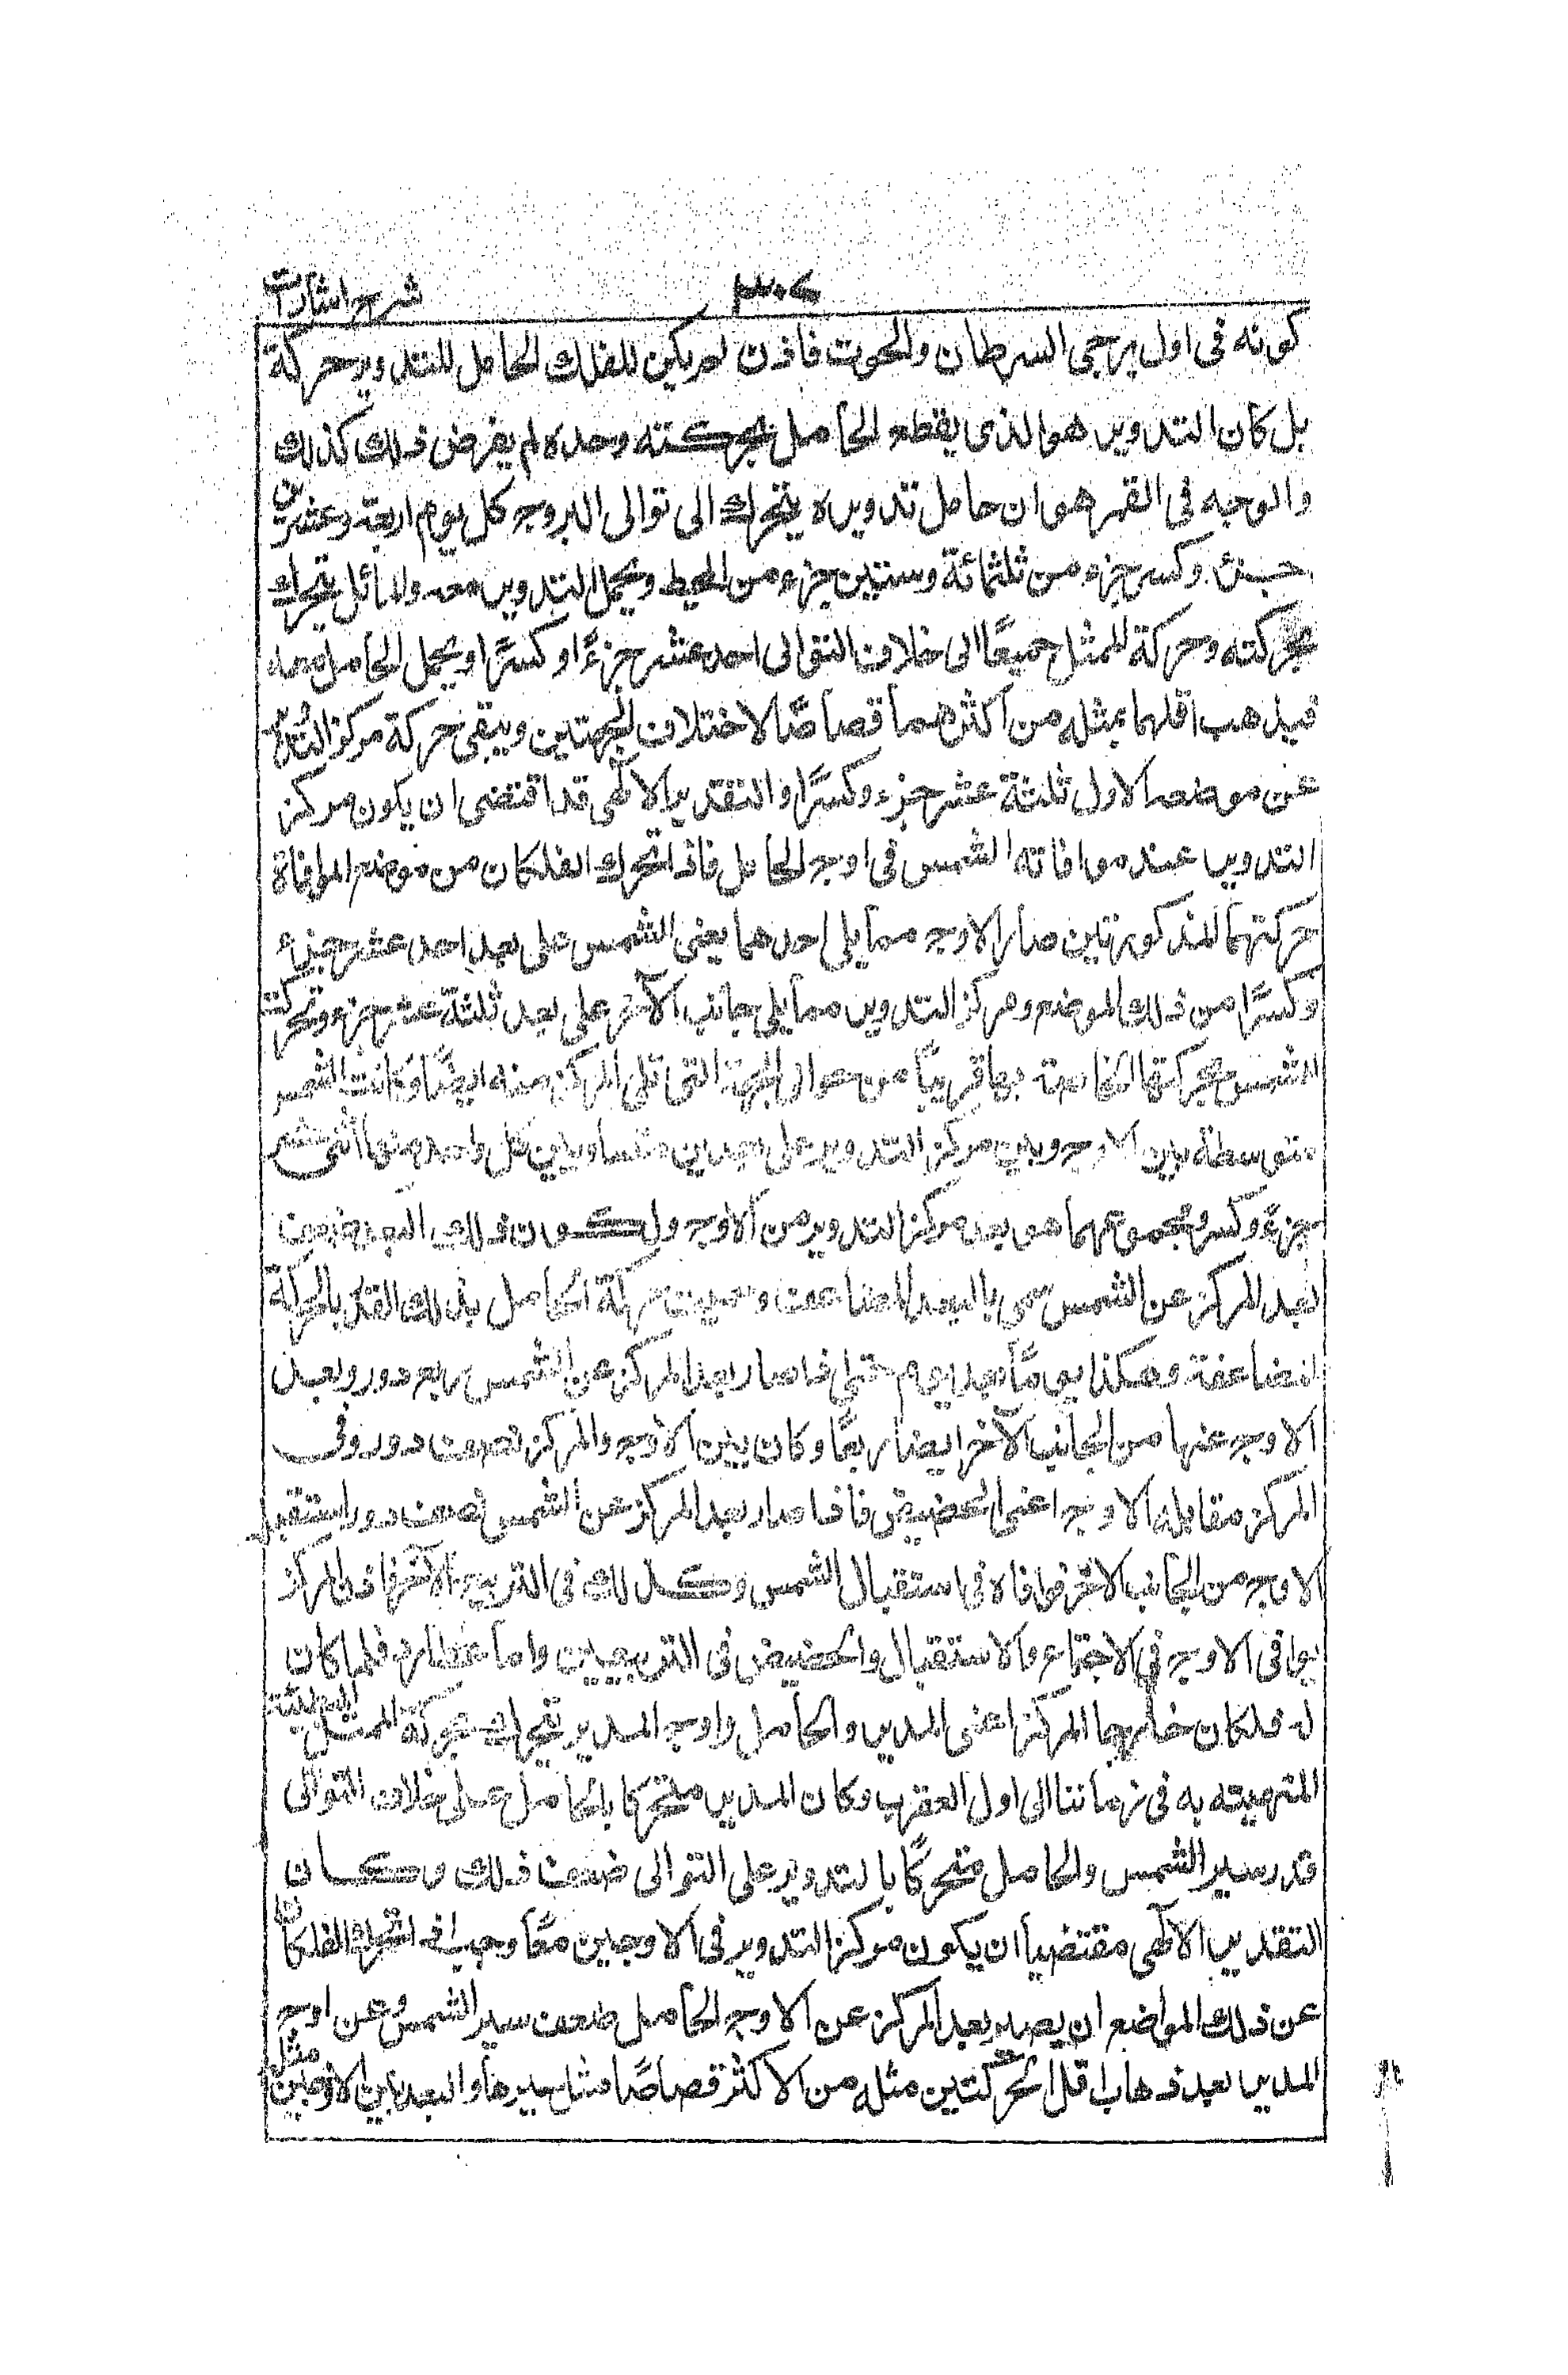 شرح اشارات
كونه فى اول برجى السرطان والحوت فاذن لم يكن للفلك الحامل للتدوير حركة
بل كان التدوير هو الذى يقطع الحامل بحركته وحده لم يعرض ذلك كذلك
والوجه فى القمر هو ان حامل تدويره يتحرك الى توالى البروج كل يوم اربعة وعشرين
جزء وكسر جزء من ثلثمائة وستين جزء من المحيط ويحمل التدوير معه والمائل يتحرك
بحركته وحركة الممثل جميعًا الى خلاف التوالى احد عشر جزءً او كسرًا ويحمل الحامل معه
فيذهب اقلهما بمثله من اكثرهما قصاصًا لاختلاف الجهتين ويبقى حركة مركز التدوير
عن موضعه الاول ثلثة عشر جزء وكسرًا والتقدير الالٰهى قد اقتضى ان يكون مركز
التدوير عند موافاته الشمس فى اوج الحامل فاذا تحرك الفلكان من موضع الموافاة
حركتهما المذكورتين صار الاوج مما يلى احدهما يعنى الشمس على بعد احد عشر جزء
وكسرًا من ذلك الموضع ومركز التدوير مما يلى جانب الآخر على بعد ثلثة عشر جزء وتحركت
الشمس بحركتها الخاصة بها قريبًا من جزء الى الجهة التى تلى المركز منه ايضًا وكانت الشمس
متوسطة بين الاوج وبين مركز التدوير على بعدين متساويين كل واحد منهما اثنى عشر
جزءً وكسر ومجموعهما هو بعد مركز التدوير من الاوج ولكون ذلك البعد ضعف
بعد المركز عن الشمس سمى بالبعد المضاعف وسميت حركة الحامل بذلك القدر بالحركة
المضاعفة وهكذا يومًا بعد يوم حتى اذا صار بعد المركز عن الشمس ربع دور وبعد
الاوج عنها من الجانب الآخر ايضا ربعًا وكان بين الاوج والمركز نصف دور وفى
المركز مقابلة الاوج اعنى الحضيض فاذا صار بعد المركز عن الشمس نصف دور استقبل
الاوج من الجانب الآخر فوافاه فى استقبال الشمس وكذلك فى التربيع الآخر فاذن المركز
يوافى الاوج فى الاجتماع والاستقبال والحضيض فى التربيعين واما عطارد فلما كان
له فلكان خارجا المركز اعنى المدير والحامل واوج المدير يتحرك بحركة الممثل البطيئة
المنتهية به فى زماننا الى اول العقرب وكان المدير متحركا بالحامل على خلاف التوالى
قدر سير الشمس والحامل متحركًا بالتدوير على التوالى ضعف ذلك وكان
التقدير الالٰهى مقتضيا ان يكون مركز التدوير فى الاوجين معًا وجب اذا تحرك الفلكان
عن ذلك المواضع ان يصير بعد المركز عن الاوج الحامل ضعف سير الشمس وعن اوج
المدير بعد ذهاب اقل الحركتين مثله من الاكثر قصاصًا مثل سيرها والبعد بين الاوجين مثل